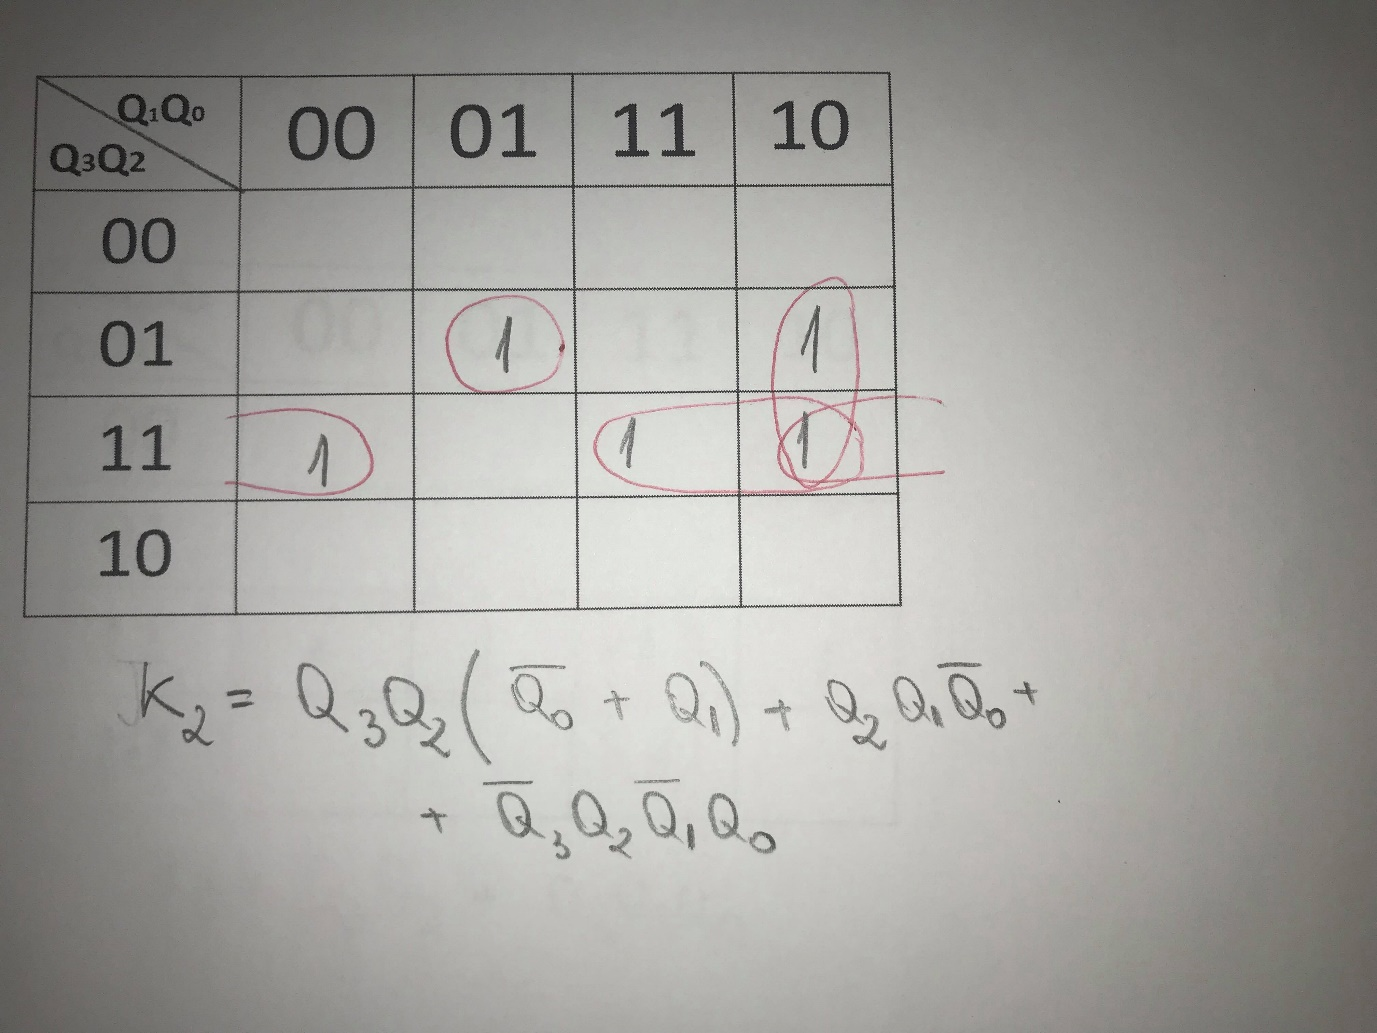 Q₁Q₀ 00 01 11 10
Q₃Q₂
00
01 1 1
11 1 1 1
10
K₂ = Q₃Q₂(Q̅₀ + Q₁) + Q₂Q₁Q̅₀ +
+ Q̅₃Q₂Q̅₁Q₀